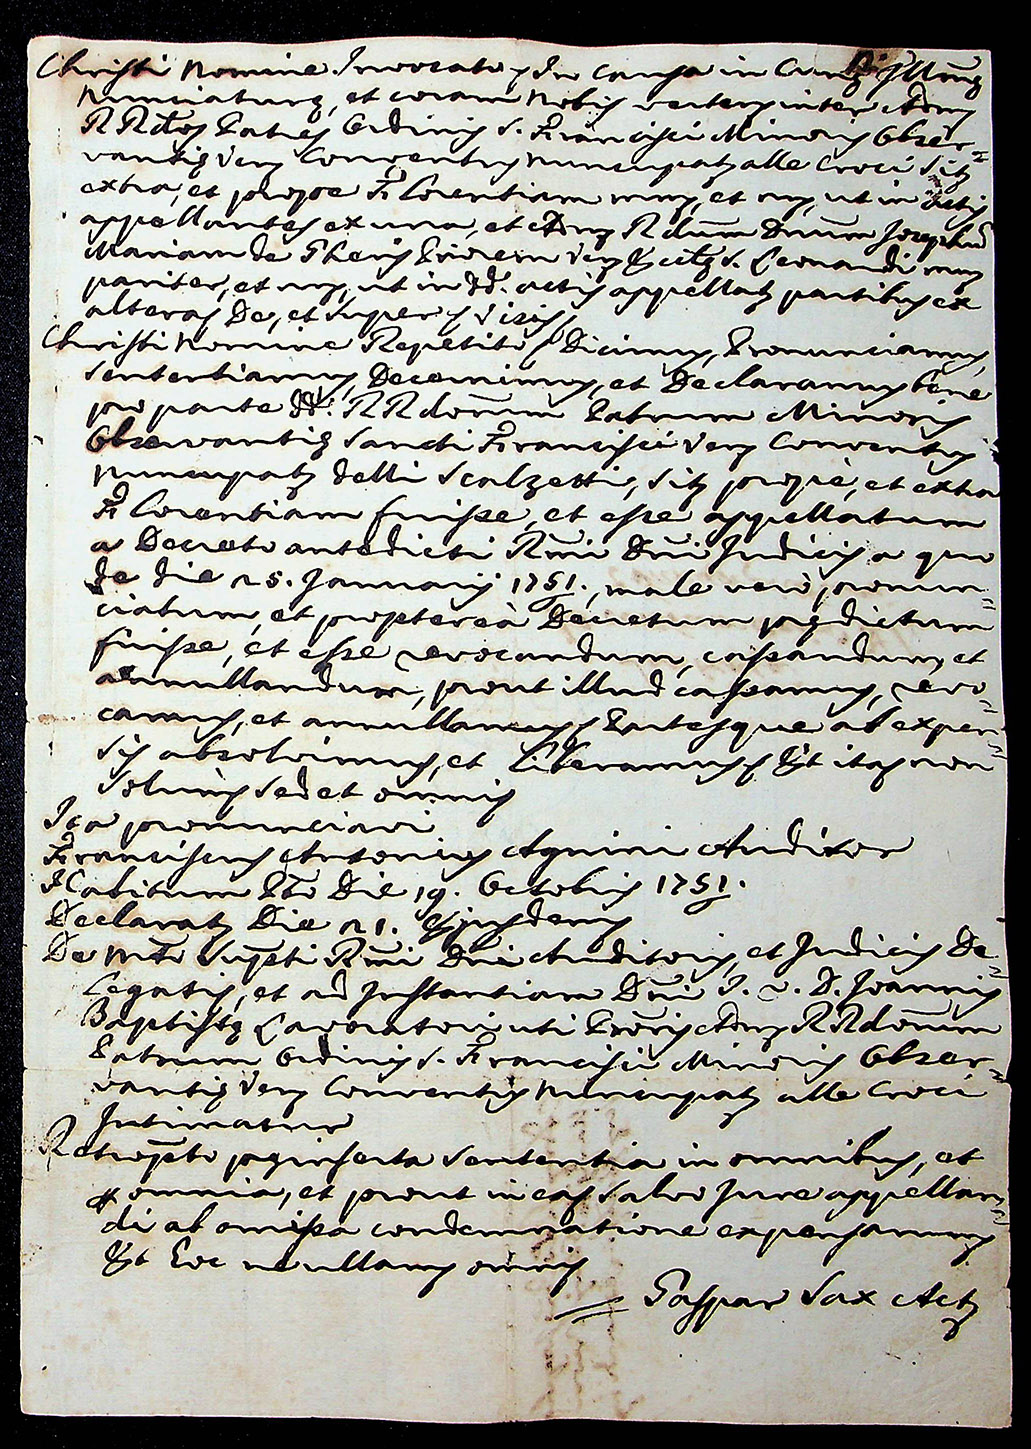 Christi Nomine Invocato, In causa in Curia
Nunciaturæ, et coram Nobis vertens inter Adm
RRdos Patres Ordinis S. Francisci Minoris Obser-
vantiæ Ven Conventus nuncupatj alle Croci sitj
extra, et prope Florentiam mm, et nn, ut in Actis
appellantes ex una, et Adm Rdum Dnum Josephum
Mariam de Priorem Ven Ecclæ S. Leonardi mm
pariter, et nn, ut in dd. actis appellatj partibus ex
altera, De, et super, Visis,
Christi Nomine Repetito, Dicimus, Pronunciamus,
Sententiamus, Decernimus, et Declaramus bene
pro parte dd: RRdorum Patrum Minoris
Observantiæ Sancti Francisci Ven Conventus
nuncupatj delli Scalzetti, Sitj propè, et extra
Florentiam fuisse, et esse appellatum
a Decreto antedicti Rmi Dni Judicis a quo
de die 25. Januarij 1751., male verò, pronun=
ciatum, et proptereà Decretum prædictum
fuisse, et esse revocandum, cassandum, et
annullandum, prout illud cassamus, revo=
camus, et annullamus, Partesque ab expen=
sis absolvimus, et liberamus, Et ita, non
Solum, Sed et omnis
Ita pronunciavi
Franciscus Antonius Agnini Auditor
Habitum Pto Die 19. Octobris 1751.
Declaratj Die 21. Ejusdem
De Mto Supti Rmi Dni Auditoris, et Judicis De=
legatis, et ad Instantiam Dni J. V. D. Joannis
Baptistæ Lavoratori uti Prōris Adm RRdorum
Patrum Ordinis S. Francisci Minoris Obser=
vantiæ Ven Conventus Nuncupatj alle Croci
Intimatur
Retropto præinserta Sententia in omnibus, et
omnia, et prout in ea, Salvo Jure appellan=
di ab omissa condemnatione expensarum
Et hoc omnis
Gaspar Sax Actj